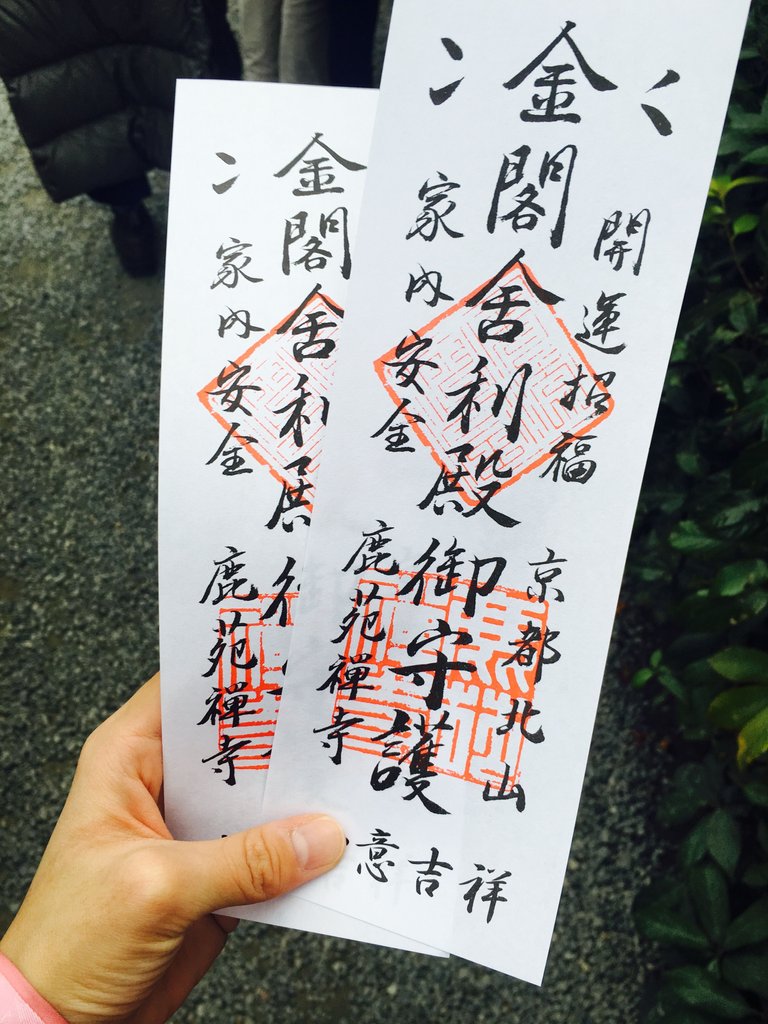 金閣舎利殿御守護
開運招福
家内安全
京都北山
鹿苑禅寺
意吉祥
金閣舎利殿
家内安全
鹿苑禅寺